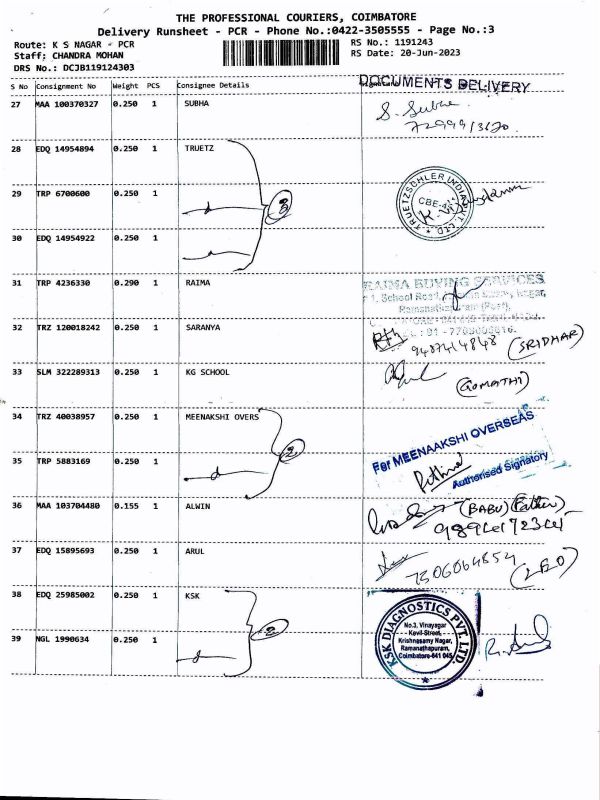 THE PROFESSIONAL COURIERS, COIMBATORE
Delivery Runsheet - PCR - Phone No.:0422-3505555 - Page No.:3
Route: K S NAGAR - PCR
RS No.: 1191243
Staff: CHANDRA MOHAN
RS Date: 20-Jun-2023
DRS No.: DCJB119124303
S No Consignment No Weight PCS Consignee Details
DOCUMENTS DELIVERY
27 MAA 100370327 0.250 1 SUBHA
S. Subha
28 EDQ 14954894 0.250 1 TRUETZ
29 TRP 6700600 0.250 1
3
TRUETZSCHLER INDIA PVT. LTD.
CBE-45
30 EDQ 14954922 0.250 1
31 TRP 4236330 0.290 1 RAIMA
RAIMA BUYING SERVICES
32 TRZ 120018242 0.250 1 SARANYA
9487414848 (SRIDHAR)
33 SLM 322289313 0.250 1 KG SCHOOL
(GOMATHI)
34 TRZ 40038957 0.250 1 MEENAKSHI OVERS
2
For MEENAAKSHI OVERSEAS
Authorised Signatory
35 TRP 5883169 0.250 1
36 MAA 103704480 0.155 1 ALWIN
(BABU) (Father)
37 EDQ 15895693 0.250 1 ARUL
7306064854
38 EDQ 25985002 0.250 1 KSK
2
KSK DIAGNOSTICS PVT. LTD.
No.3, Vinayagar
Kovil-Street,
Krishnasamy Nagar,
Ramanathapuram,
Coimbatore-641 045
39 NGL 1990634 0.250 1